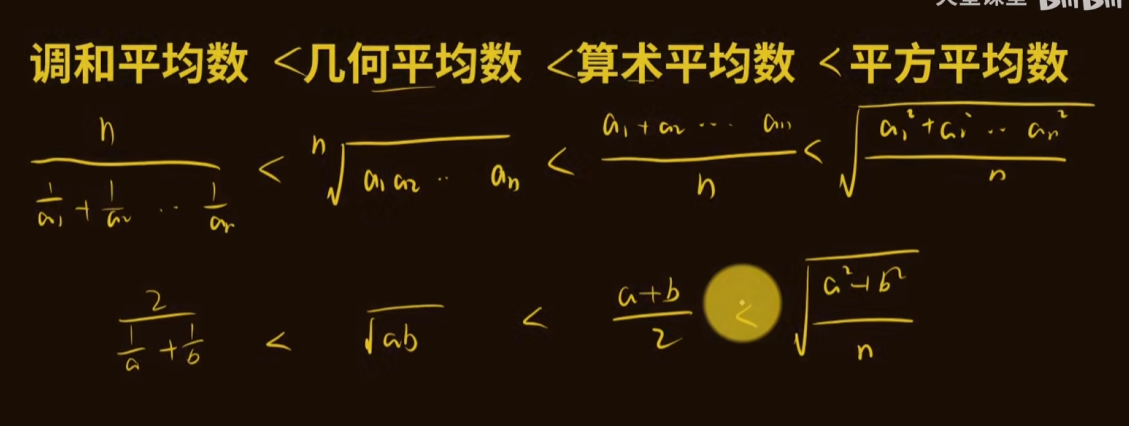 天堂课堂 bilibili
调和平均数 <几何平均数 <算术平均数 <平方平均数
n/(1/a₁ + 1/a₂ ·· 1/aₙ) < ⁿ√(a₁ a₂ ·· aₙ) < (a₁ + a₂ ··· aₙ)/n < √((a₁² + a₁² ·· aₙ²)/n)
2/(1/a + 1/b) < √(ab) < (a+b)/2 < √((a²+b²)/n)